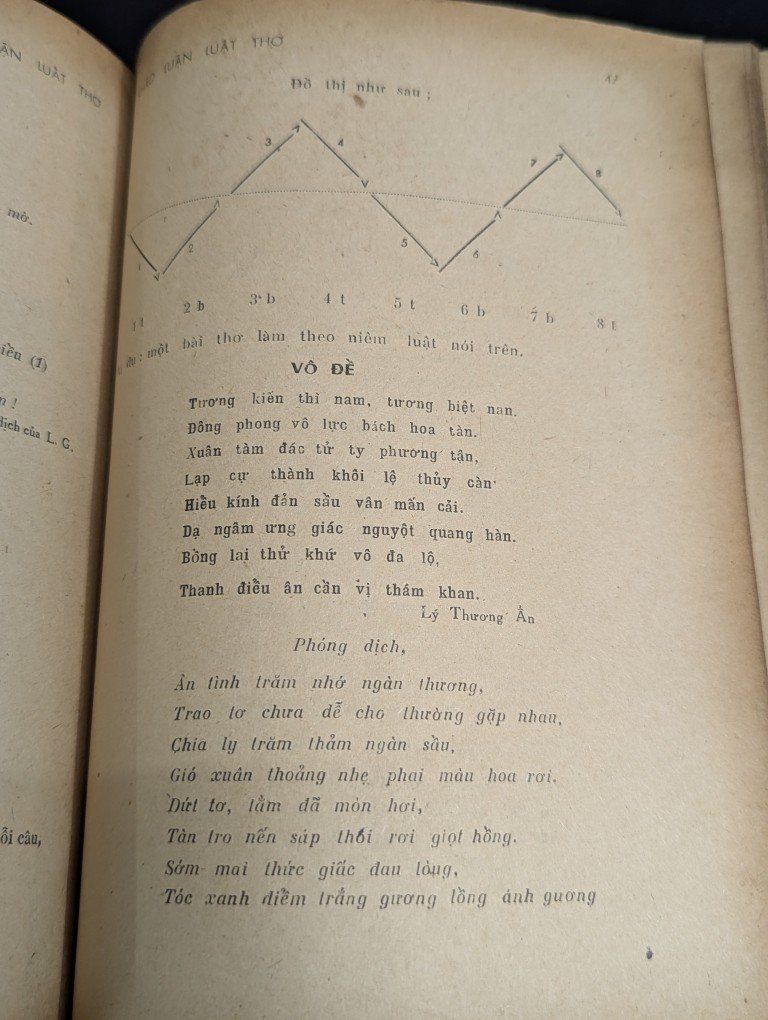 ẬN LUẬT THƠ
mờ.
iều (1)
n !
dịch của L. G.
ỗi câu,
LUẬN LUẬT THƠ
Đồ thị như sau ;
1
2
3
4
5
6
7
8
1 t 2 b 3 b 4 t 5 t 6 b 7 b 8 t
dụ : một bài thơ làm theo niêm luật nói trên.
VÔ ĐỀ
Tương kiến thì nam, tương biệt nan.
Đông phong vô lực bách hoa tàn.
Xuân tàm đác tử ty phương tận,
Lạp cự thành khôi lệ thủy càn.
Hiểu kính đản sầu vân mấn cải.
Dạ ngâm ưng giác nguyột quang hàn.
Bồng lai thử khứ vô đa lộ,
Thanh điểu ân cần vị thám khan.
Lý Thương Ẩn
Phóng dịch,
Ân tình trăm nhớ ngàn thương,
Trao tơ chưa dễ cho thường gặp nhau,
Chia ly trăm thảm ngàn sầu,
Gió xuân thoảng nhẹ phai màu hoa rơi.
Dứt tơ, tằm đã mòn hơi,
Tàn tro nến sáp thôi rơi giọt hồng.
Sớm mai thức giấc đau lòng,
Tóc xanh điểm trắng gương lồng ánh guong